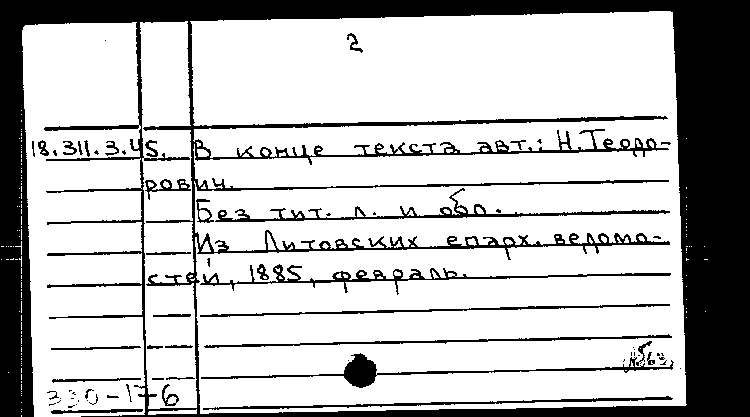 2
18.311.3.45. В конце текста авт.: Н. Теодо-
рович.
Без тит. л. и обл.
Из Литовских епарх. ведомо-
стей, 1885, февраль.
330-17-6